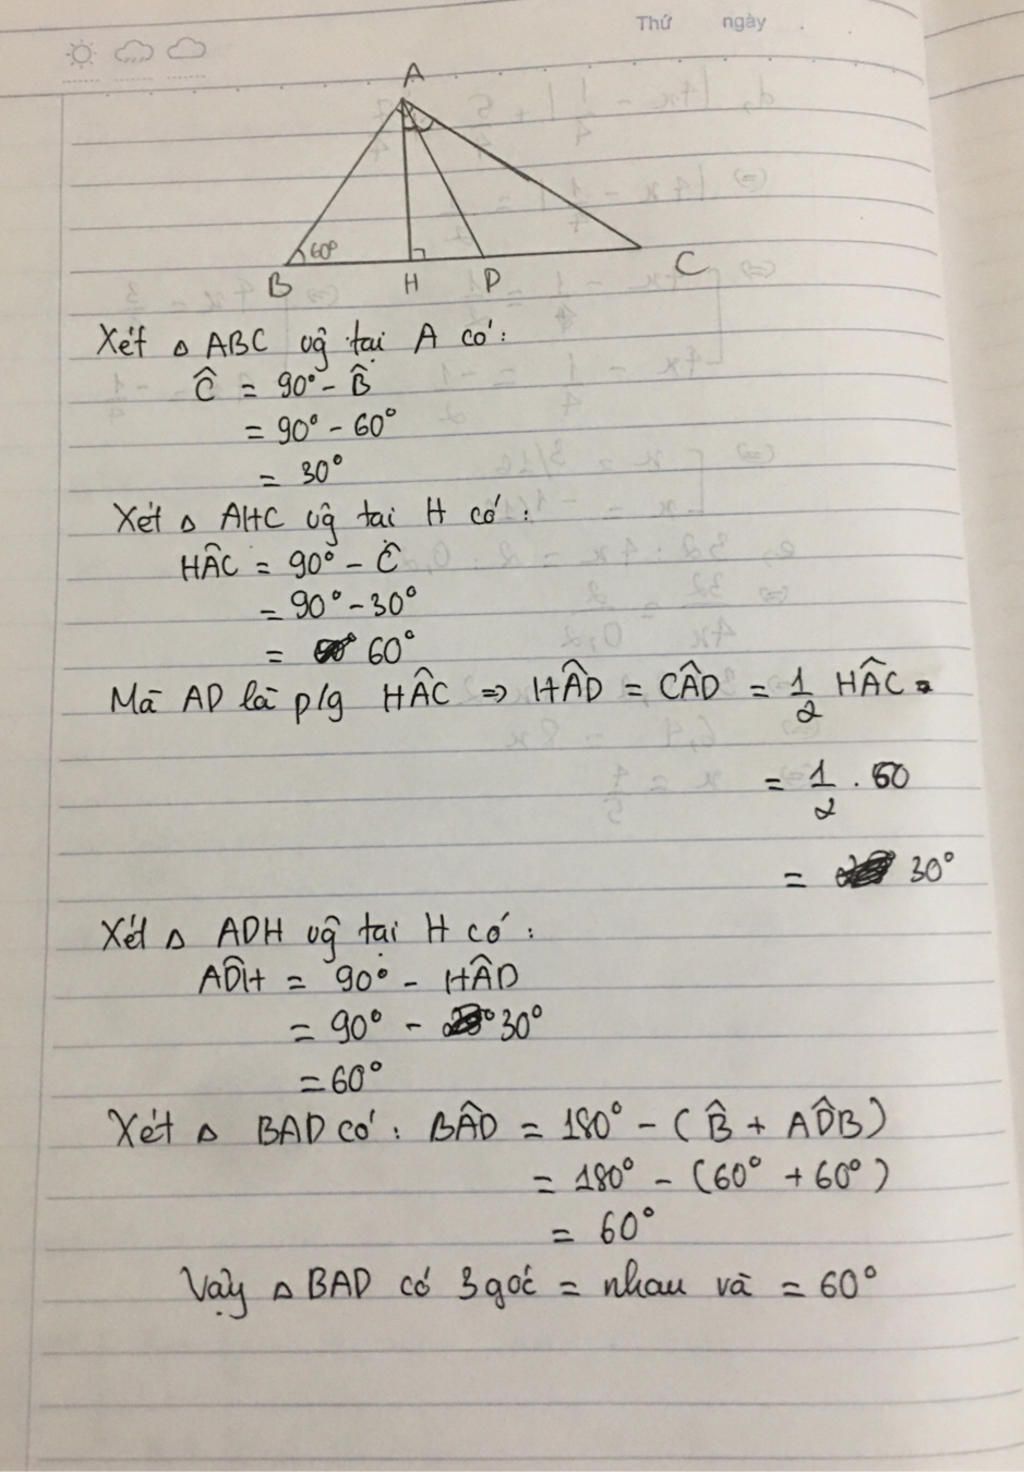 Thứ ngày .
A
60°
B H D C
Xét △ ABC vg tại A có:
Ĉ = 90° - B̂
= 90° - 60°
= 30°
Xét △ AHC vg tại H có:
HÂC = 90° - Ĉ
= 90° - 30°
= 60°
Mà AD là p/g HÂC => HÂD = CÂD = 1/2 HÂC
= 1/2 . 60
= 30°
Xét △ ADH vg tại H có:
AD̂H = 90° - HÂD
= 90° - 30°
= 60°
Xét △ BAD có: BÂD = 180° - (B̂ + AD̂B)
= 180° - (60° + 60°)
= 60°
Vậy △ BAD có 3 góc = nhau và = 60°